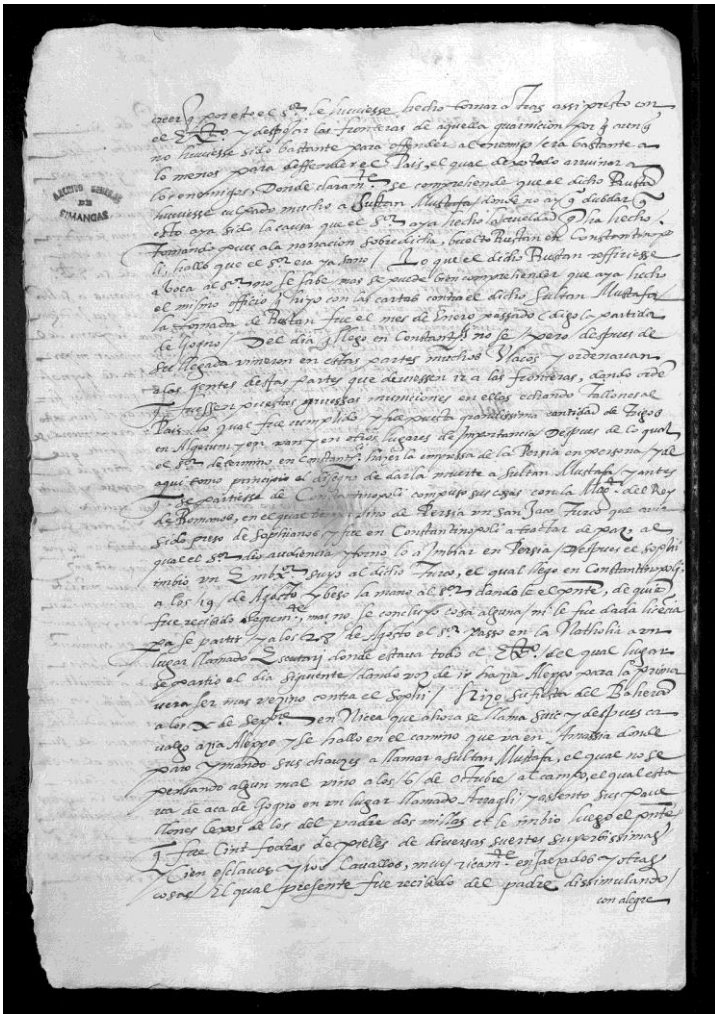 creer q̃ por esto el s.or le huuiesse hecho tornar a tras assi presto con
el Ex.to y despojar las fronteras de aquella guarnicion por q̃ aunq̃
no huuiesse sido bastante para offender al enemigo / era bastante a
lo menos para deffender el Pais, el qual dexo todo arruinar a
los enemigos, Donde claram.te se comprehende que el dicho Rustan
huuiesse culpado mucho a Sultan Mustafa / donde no ay q̃ dubdar q̃
esto aya sido la causa que el s.or aya hecho la crueldad q̃ ha hecho.
Tornando pues a la narracion sobredicha, buelto Rustan en Constantinopo
li, hallo que el s.or era ya sano / Lo que el dicho Rustan refiriesse
a boca al s.or no se sabe mas se puede bien comprehender que aya hecho
el mismo officio q̃ hizo con las cartas contra el dicho Sultan Mustafa /
la tornada de Rustan fue el mes de Enero passado (digo la partida
de Gogno) / Del dia q̃ llego en Constant.li no se, pero despues de
su llegada vinieron en estas partes muchos Vlacos y ordenauan
a las gentes destas partes que deuiessen ir a las fronteras, dando orde
q̃ fuessen puestos gruessas municiones en ellas echando Tallones al
Pais. lo qual fue cumplido y fue puesta grandissima cantidad de Trigos
en Algirum y en Van y en otros lugares de importancia / Despues de lo qual
el s.or determino en Constant.li hazer la impressa de la Persia en persona, y de
aqui tomo principio el disegno de dar la muerte a Sultan Mustafa / y antes
q̃ se partiesse de Constantinopoli compuso sus cosas con la Mag.d del Rey
de Romanos, en el qual tiempo vino de Persia vn San Jaco turco que auia
sido preso de Sophianos y fue en Constantinopoli a tractar de paz, al
qual el s.or dio audiencia y torno lo a imbiar en Persia / Despues el Sophi
imbio vn Emb.or suyo al dicho Turco, el qual llego en Constantinopoli
a los 19 / de Agosto y beso la mano al s.or dando le el p̃nte, de quie
fue recibido, mas no se concluyo cosa alguna / ni le fue dada licẽcia
pa se partir y a los 28 / de Agosto el s.or passo en la Natholia a vn
lugar llamado Escutari donde estaua todo el Ex.to / del qual lugar
se partio el dia siguiente / dando voz de ir hazia Aleppo para la prima
uera ser mas vezino contra el Sophi / Hizo su fiesta del Baheram
a los X de Sep.bre en Nicea que ahora se llama Snic y despues ca
ualgo azia Aleppo y se hallo en el camino que va en Amassia donde
paro y mando sus chauzes a llamar a Sultan Mustafa, el qual no se
pensando algun mal vino a los / 6 / de Octubre / al campo, el qual esta
ua de aca de Gogno en vn lugar llamado Arracli y assento sus paue
llones lexos de los del padre dos millas et le imbio luego el p̃nte
q̃ fue Cint fodras de pieles de diuersas suertes superbissimas
y cien esclauos y 100 Cauallos, muy ricam.te enjaezados y otras
cosas El qual presente fue recibido del padre dissimulando /
con alegre
ARCHIVO GENERAL
DE
SIMANCAS